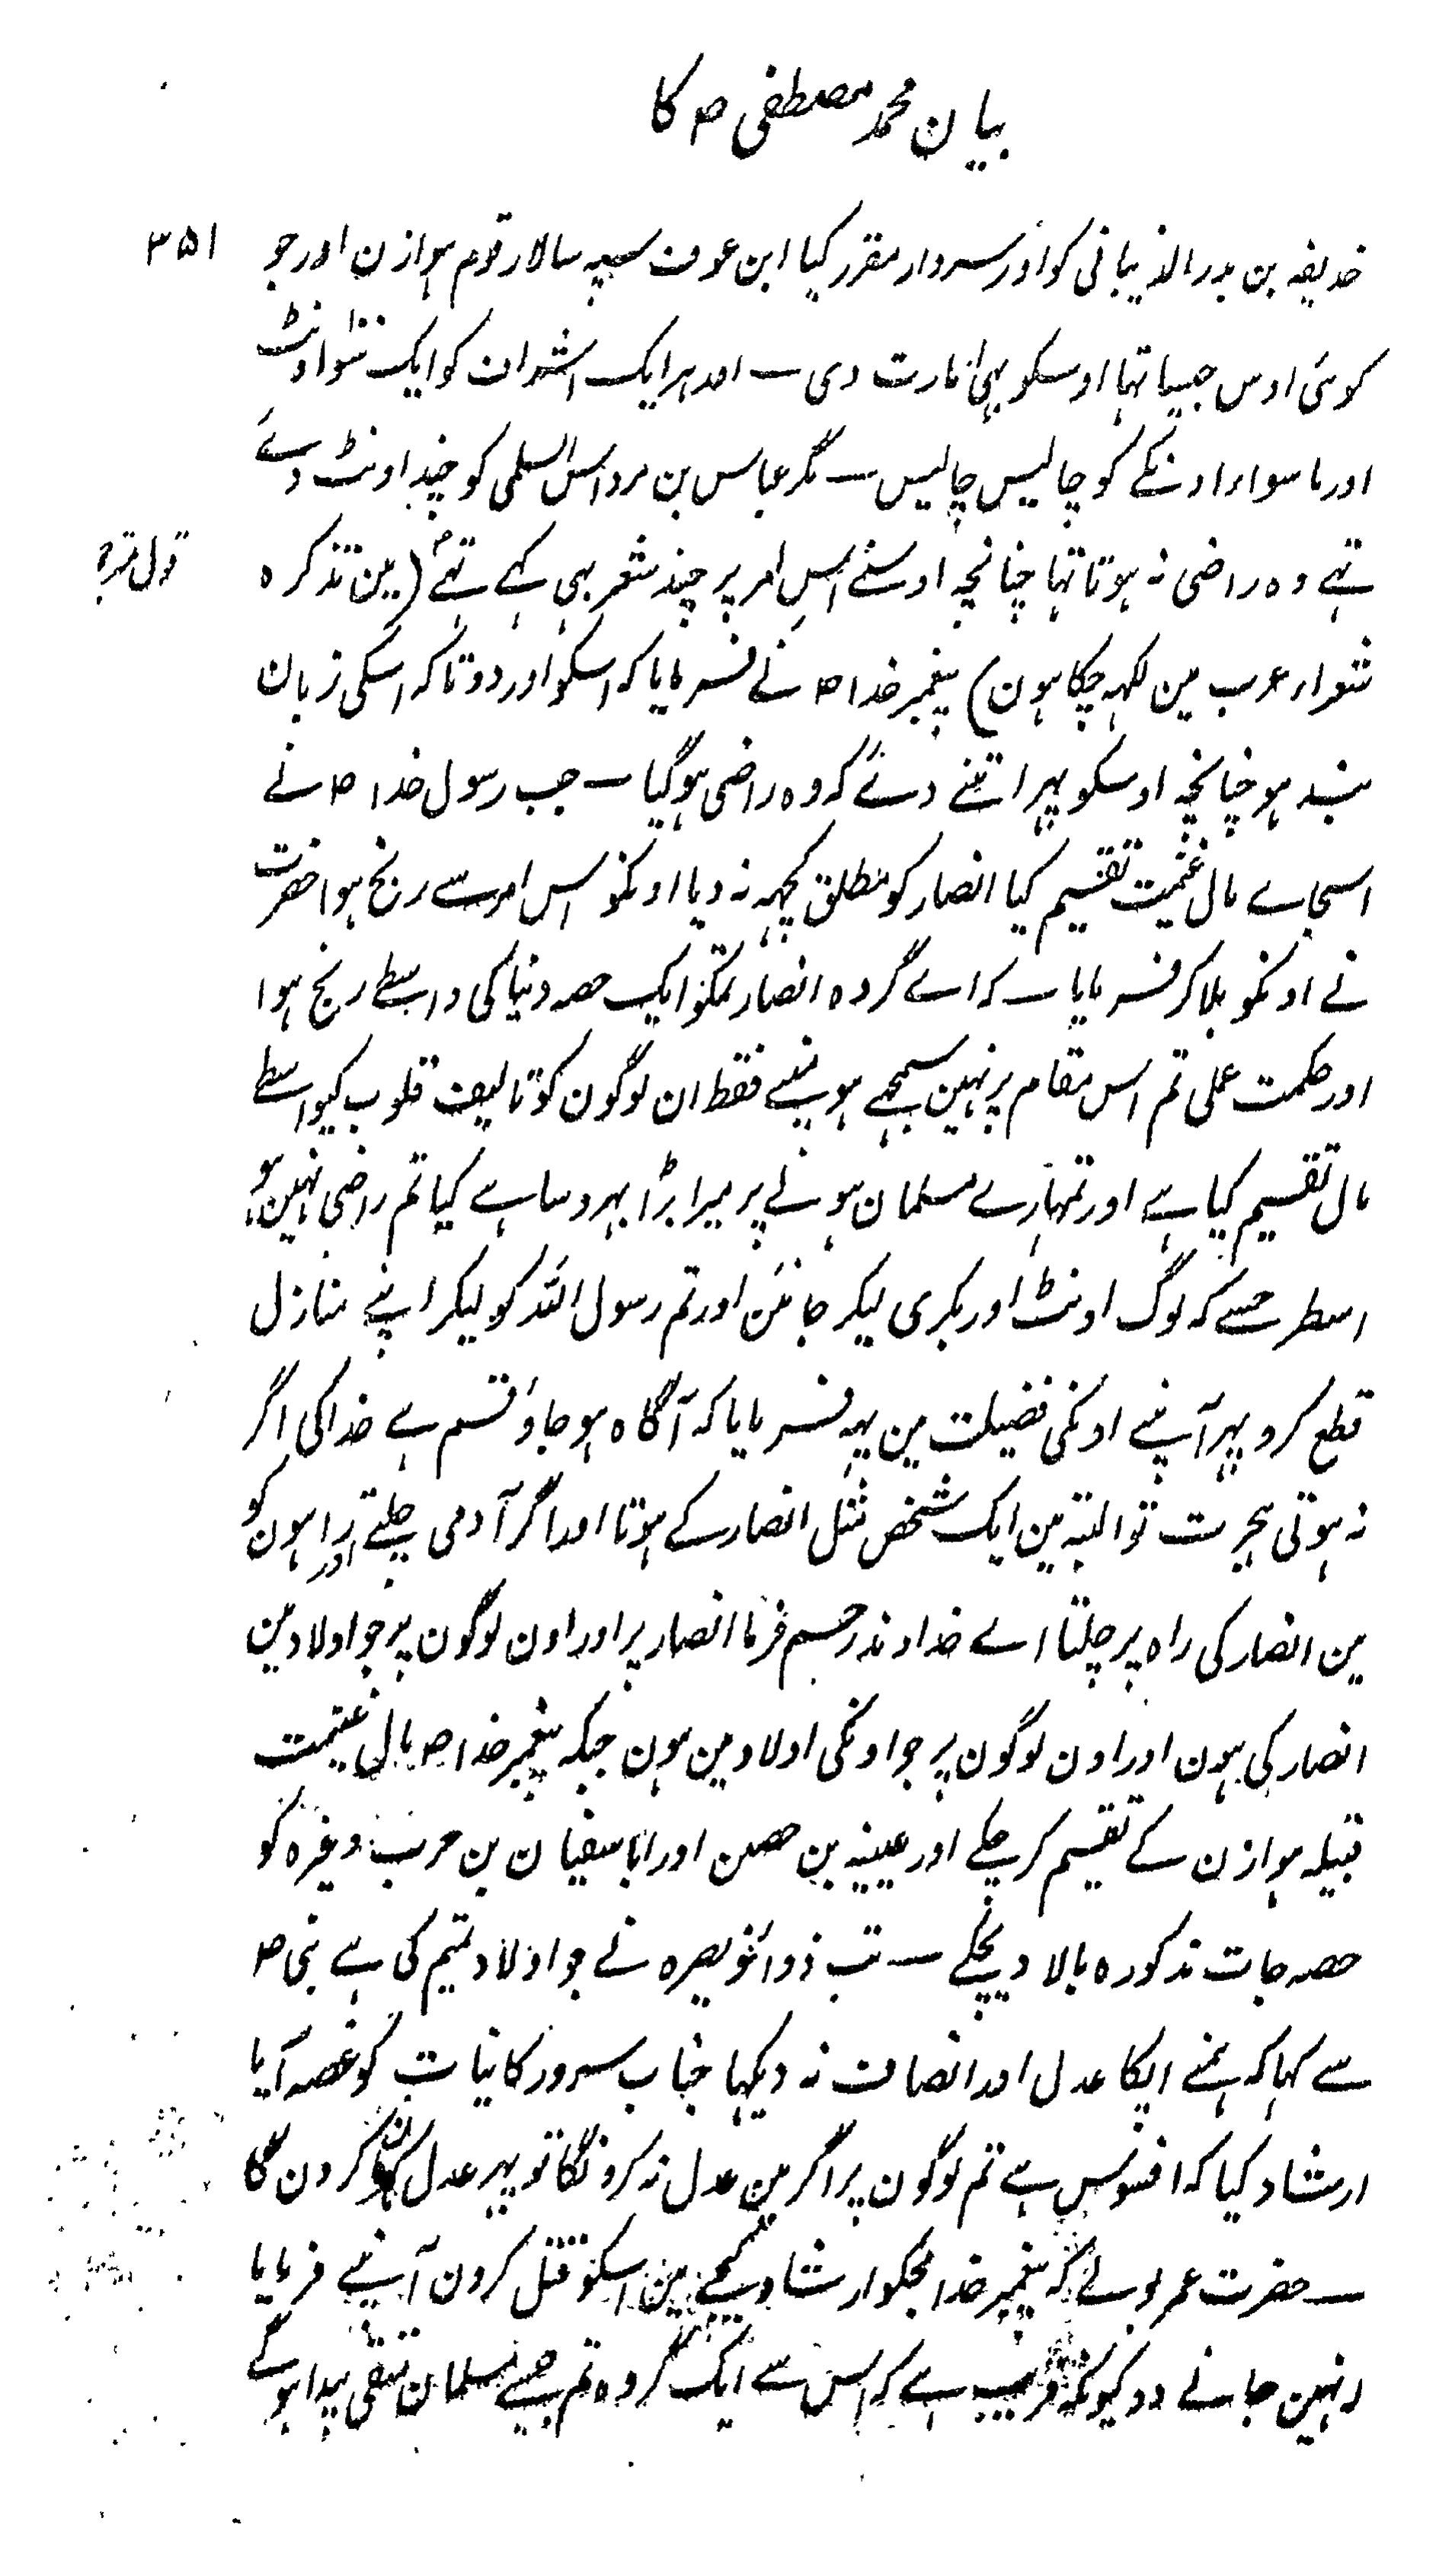 بیان محمد مصطفی ص کا
۳۵۱
خدیفہ بن بدرالذیبانی کو اور سردار مقرر کیا ابن عوف سپہ سالار قوم ہوازن اور جو
کوئی اوس جیسا تہا اوسکو بہی امارت دی — اور ہر ایک اشراف کو ایک سو اونٹ
اور ماسواء اونکے کو چالیس چالیس — مگر عباس بن مرداس السلمی کو چند اونٹ دئے
تہے وہ راضی نہ ہوتا تہا چنانچہ اوسنے اس امر پر چند شعر بہی کہے تہے (مین تذکرہ
قول مترجم
شعراء عرب مین لکہہ چکا ہون) پیغمبر خدا ص نے فرمایا کہ اسکو اور دو تاکہ اسکی زبان
بند ہو چنانچہ اوسکو پہر اتنے دئے کہ وہ راضی ہوگیا — جب رسول خدا ص نے
اسجاے مال غنیمت تقسیم کیا انصار کو مطلق کچہہ نہ دیا اونکو اس امر سے رنج ہوا حضرت
نے اونکو بلا کر فرمایا — کہ اے گروہ انصار تمکو ایک حصہ دنیا کی واسطے رنج ہوا
اور حکمت عملی تم اس مقام پر نہین سمجہے ہو مینے فقط ان لوگون کو تالیف قلوب کیواسطے
مال تقسیم کیا ہے اور تمہارے مسلمان ہونے پر میرا بڑا بہروسا ہے کیا تم راضی نہین ہو
اسطر حسے کہ لوگ اونٹ اور بکری لیکر جائین اور تم رسول اللہ کو لیکر اپنے منازل
قطع کرو پہر آپنے اونکی فضیلت مین یہہ فرمایا کہ آگاہ ہو جاؤ قسم ہے خدا کی اگر
نہ ہوتی ہجرت تو البتہ مین ایک شخص مثل انصار کے ہوتا اور اگر آدمی چلتے اور راہون کو
مین انصار کی راہ پر چلتا اے خداوند رحم فرما انصار پر اور اون لوگون پر جو اولاد مین
انصار کی ہون اور اون لوگون پر جو اونکی اولاد مین ہون جبکہ پیغمبر خدا ص مال غنیمت
قبیلہ ہوازن کے تقسیم کر چکے اور عیینہ بن حصن اور ابا سفیان بن حرب وغیرہ کو
حصہ جات مذکورہ بالا دیچکے — تب ذوالخویصرہ نے جو اولاد تمیم کی ہے نبی ص
سے کہا کہ ہمنے آپکا عدل اور انصاف نہ دیکہا جناب سرور کائنات کو غصہ آیا
ارشاد کیا کہ افسوس ہے تم لوگون پر اگر مین عدل نہ کرونگا تو پہر عدل کون کرون گا
— حضرت عمر بولے کہ پیغمبر خدا مجکو ارشاد کیجے مین اسکو قتل کرون آپنے فرمایا
نہین جانے دو کیونکہ قریب ہے کہ اس سے ایک گروہ تم جیسے مسلمان متقی پیدا ہوگے